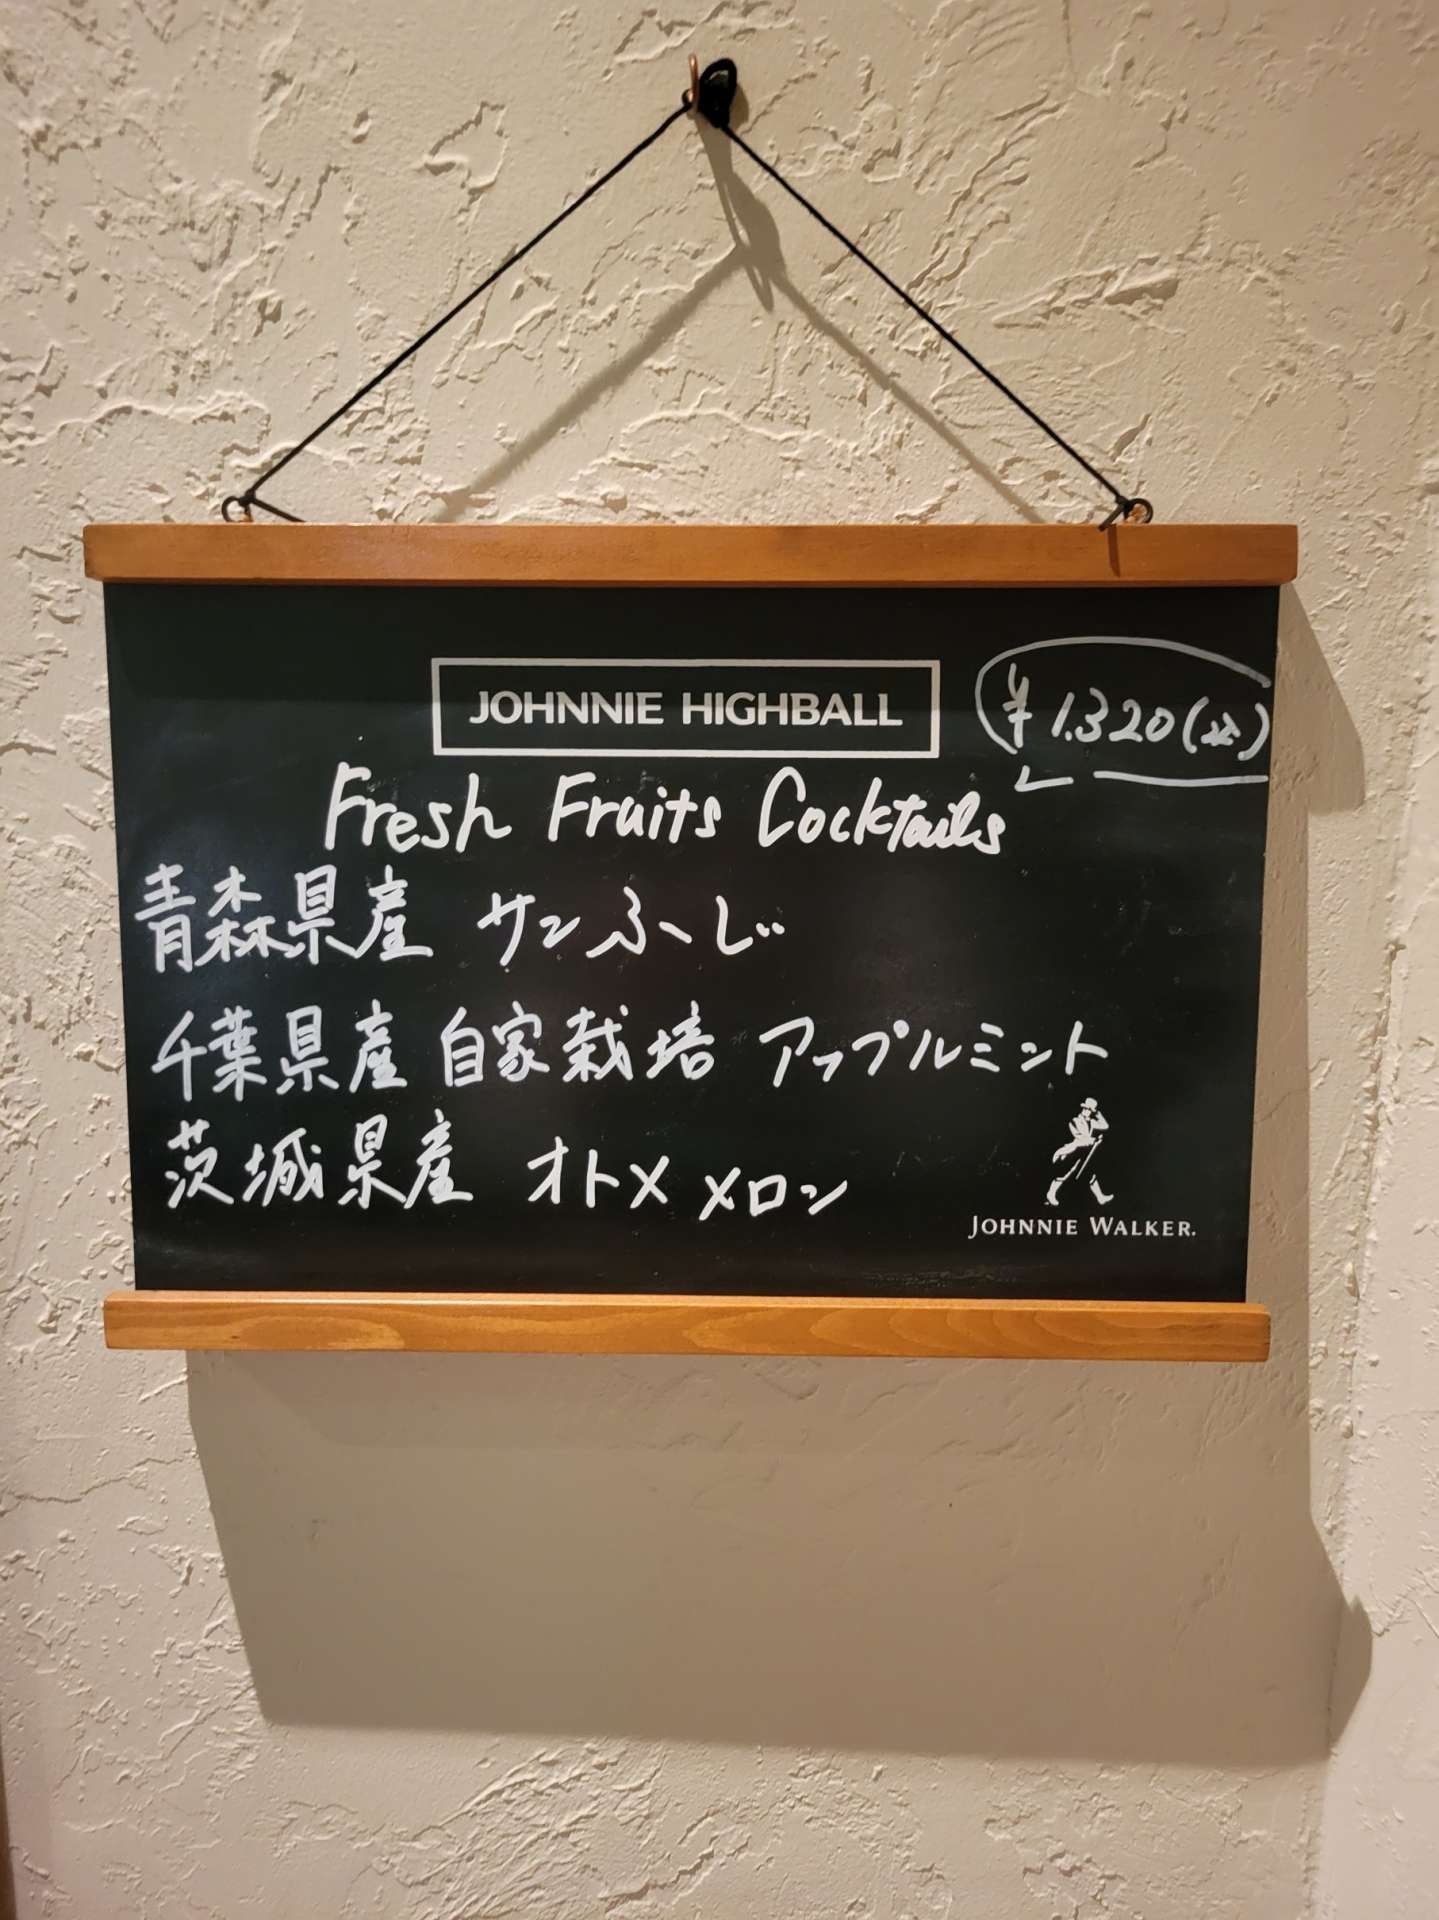 JOHNNIE HIGHBALL
¥1.320(込)
Fresh Fruits Cocktails
青森県産 サンふじ
千葉県産 自家栽培 アップルミント
茨城県産 オトメ メロン
JOHNNIE WALKER.